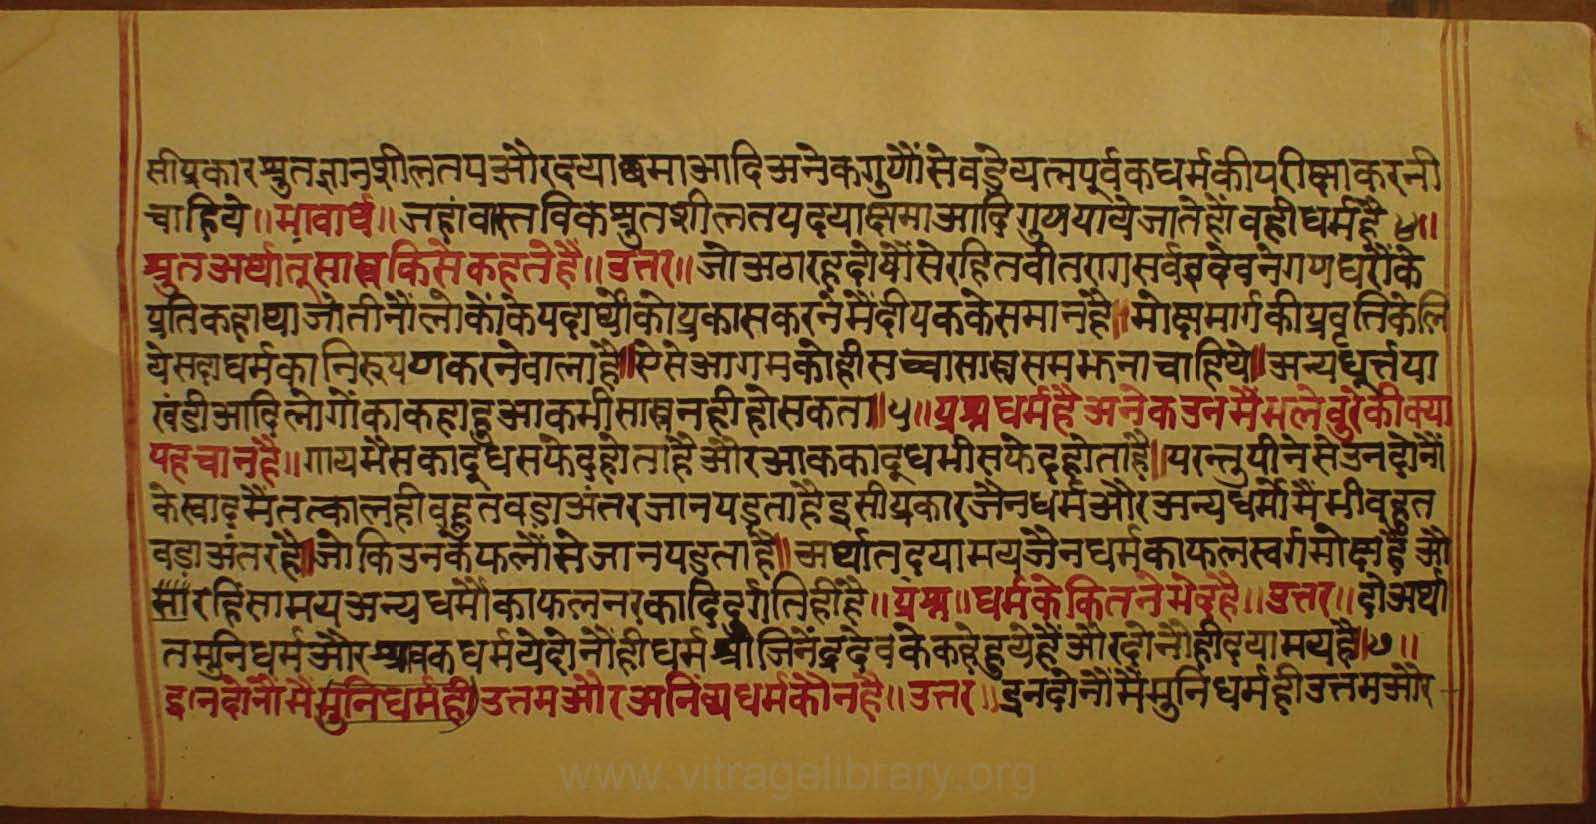 सीप्रकारश्रुतज्ञानशीलतपऔरदयाक्षमाआदिअनेकगुणौंसेवडेयत्नपूर्वकधर्मकीपरीक्षाकरनी
चाहिये॥भावार्थ॥जहांवास्तविकश्रुतशीलतपदयाक्षमाआदिगुणपायेजातेहोंवहीधर्महै४॥
श्रुतअर्थात्सास्त्रकिसेकहतेहैं॥उत्तर॥जोअठारहदोषौंसेरहितवीतरागसर्वज्ञदेवनेंगणधरौंके
प्रतिकहाथाजोतीनौंलोकोंकेपदार्थोंकोप्रकासकरनेंमैंदीपककेसमानहै॥मोक्षमार्गकीप्रवृत्तिकेलि
येसदाधर्मकानिरूपणकरनेवालाहै॥ऐसेआगमकोहीसच्चासास्त्रसमझनाचाहिये॥अन्यधूर्त्तपा
खंडीआदिलोगोंकाकहाहुआकभीसास्त्रनहीहोसकता॥५॥प्रश्नधर्महैअनेकउनमैंभलेवुरेकीक्या
पहचानहै॥गायभैंसकादूधसफेदहोताहैऔरआककादूधभीसफेदहोताहै॥परन्तुपीनेसेउनदोनौं
केस्वादमैंतत्कालहीवहुतवडाअंतरजानपडताहैइसीप्रकारजैनधर्मऔरअन्यधर्मोंमैंभीवहुत
वडाअंतरहै॥जोकिउनकेफलौंसेजानपडताहै॥अर्थातदयामयजैनधर्मकाफलस्वर्गमोक्षहैऔ
रहिंसामयअन्यधर्मौंकाफलनरकादिदुर्गतिहींहै॥प्रश्न॥धर्मकेकितनेभेदहै॥उत्तर॥दोअर्था
तमुनिधर्मऔरश्रावकधर्मयेदोनौंहीधर्मश्रीजिनेंद्रदेवकेकहेहुयेहैंऔरदोनौहीदयामयहै॥७॥
इनदोनौंमैंमुनिधर्महीउत्तमऔरअनिंद्यधर्मकौनहै॥उत्तर॥इनदोनौंमैंमुनिधर्महीउत्तमऔर
www.vitragelibrary.org